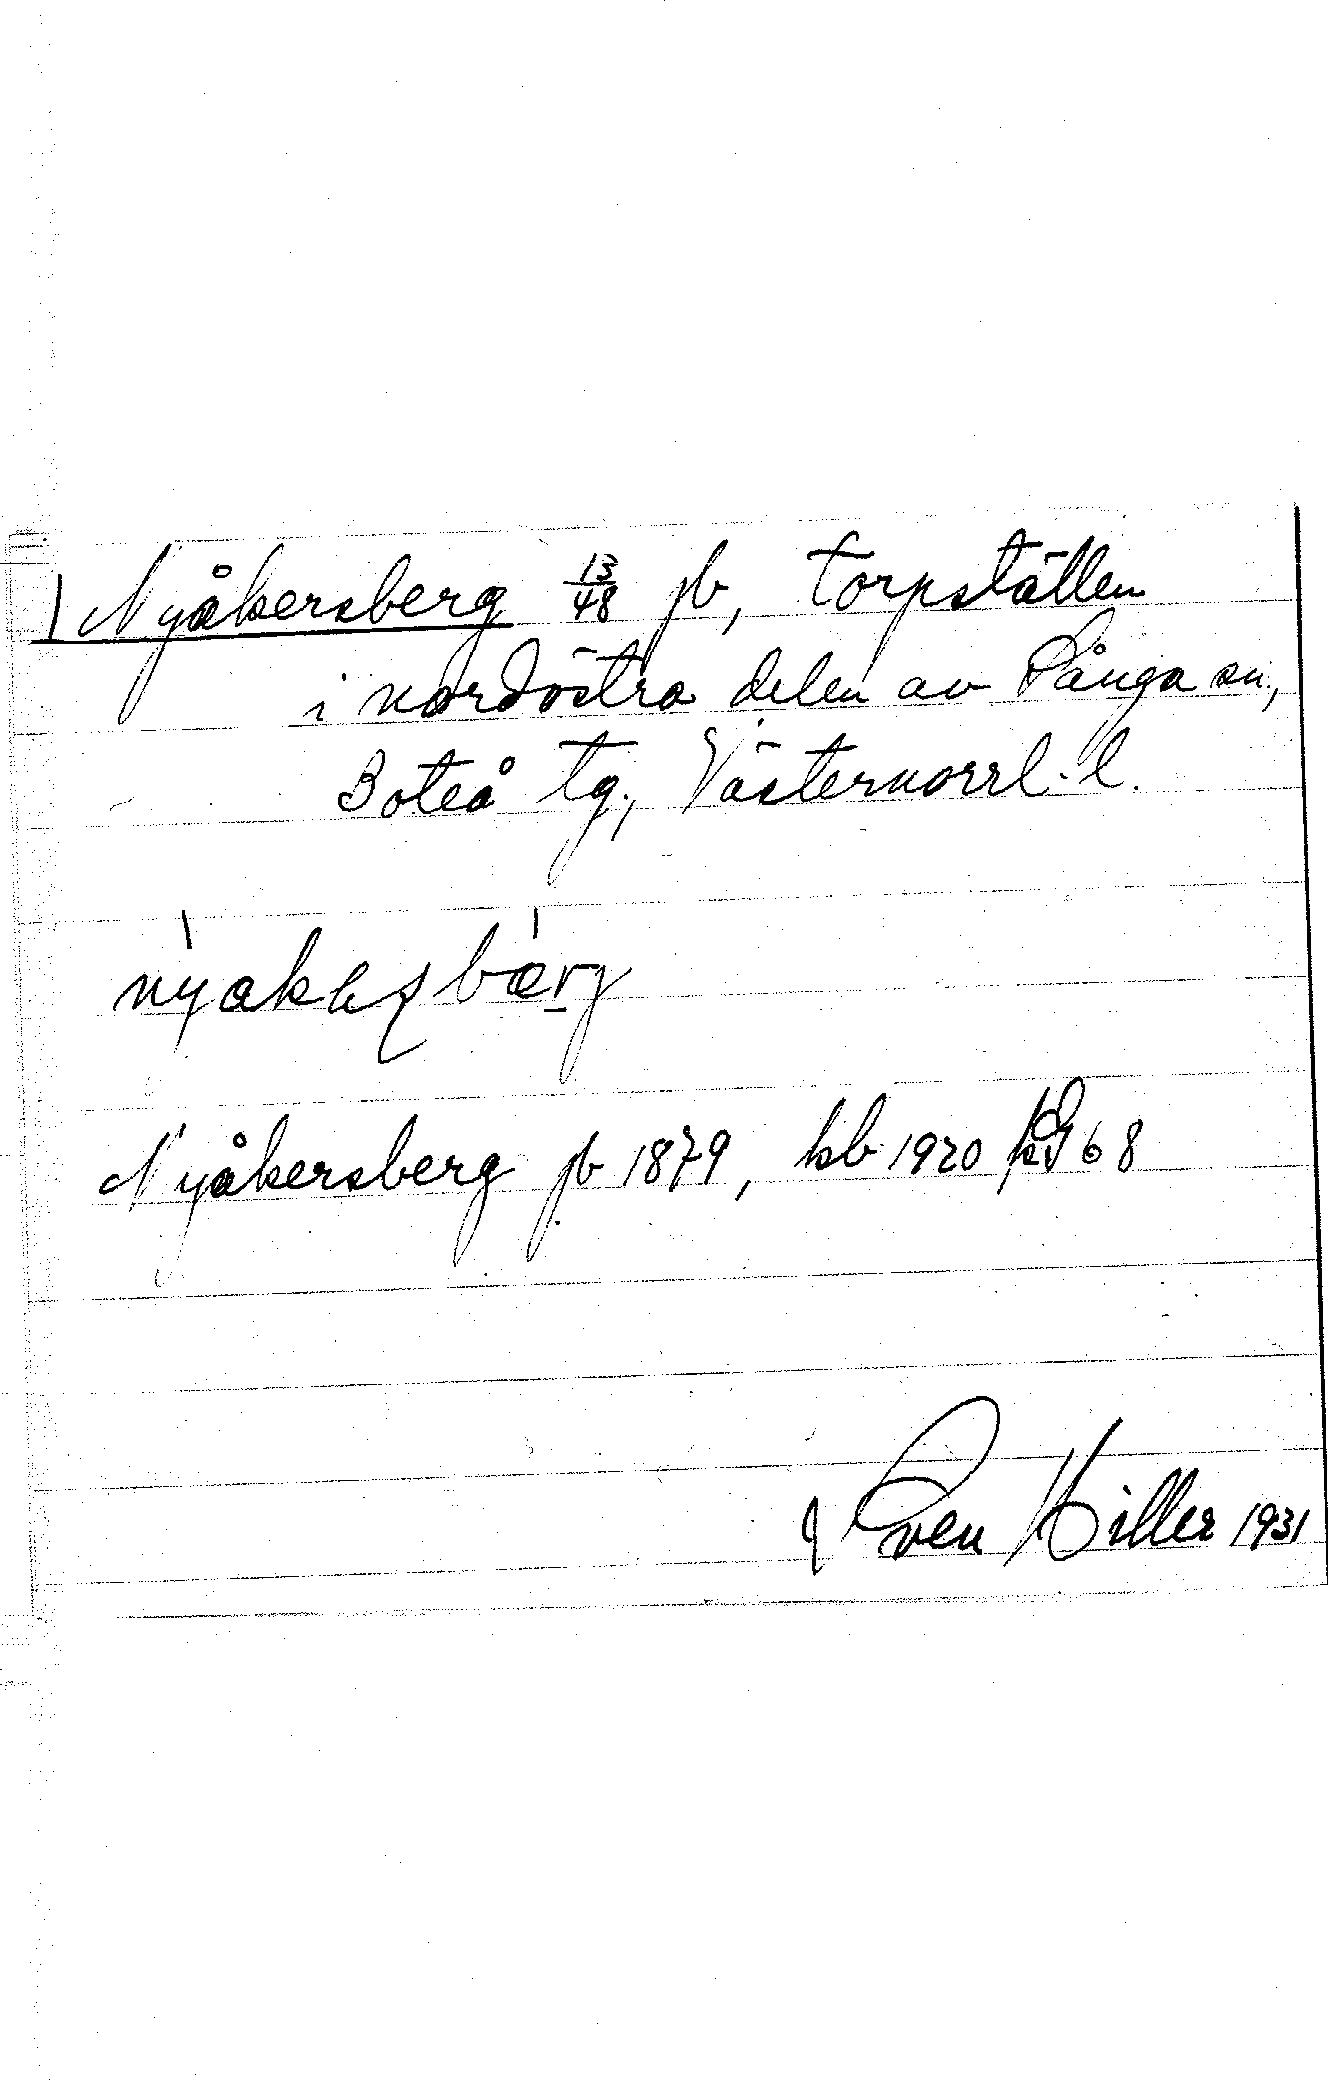 Nyåkersberg 13/48 jb, torpställen
i nordöstra delen av Sånga sn,
Boteå tg., Västernorrl. l.
Nyåkersberg jb 1879, kb 1920 68
Sven Hiller 1931